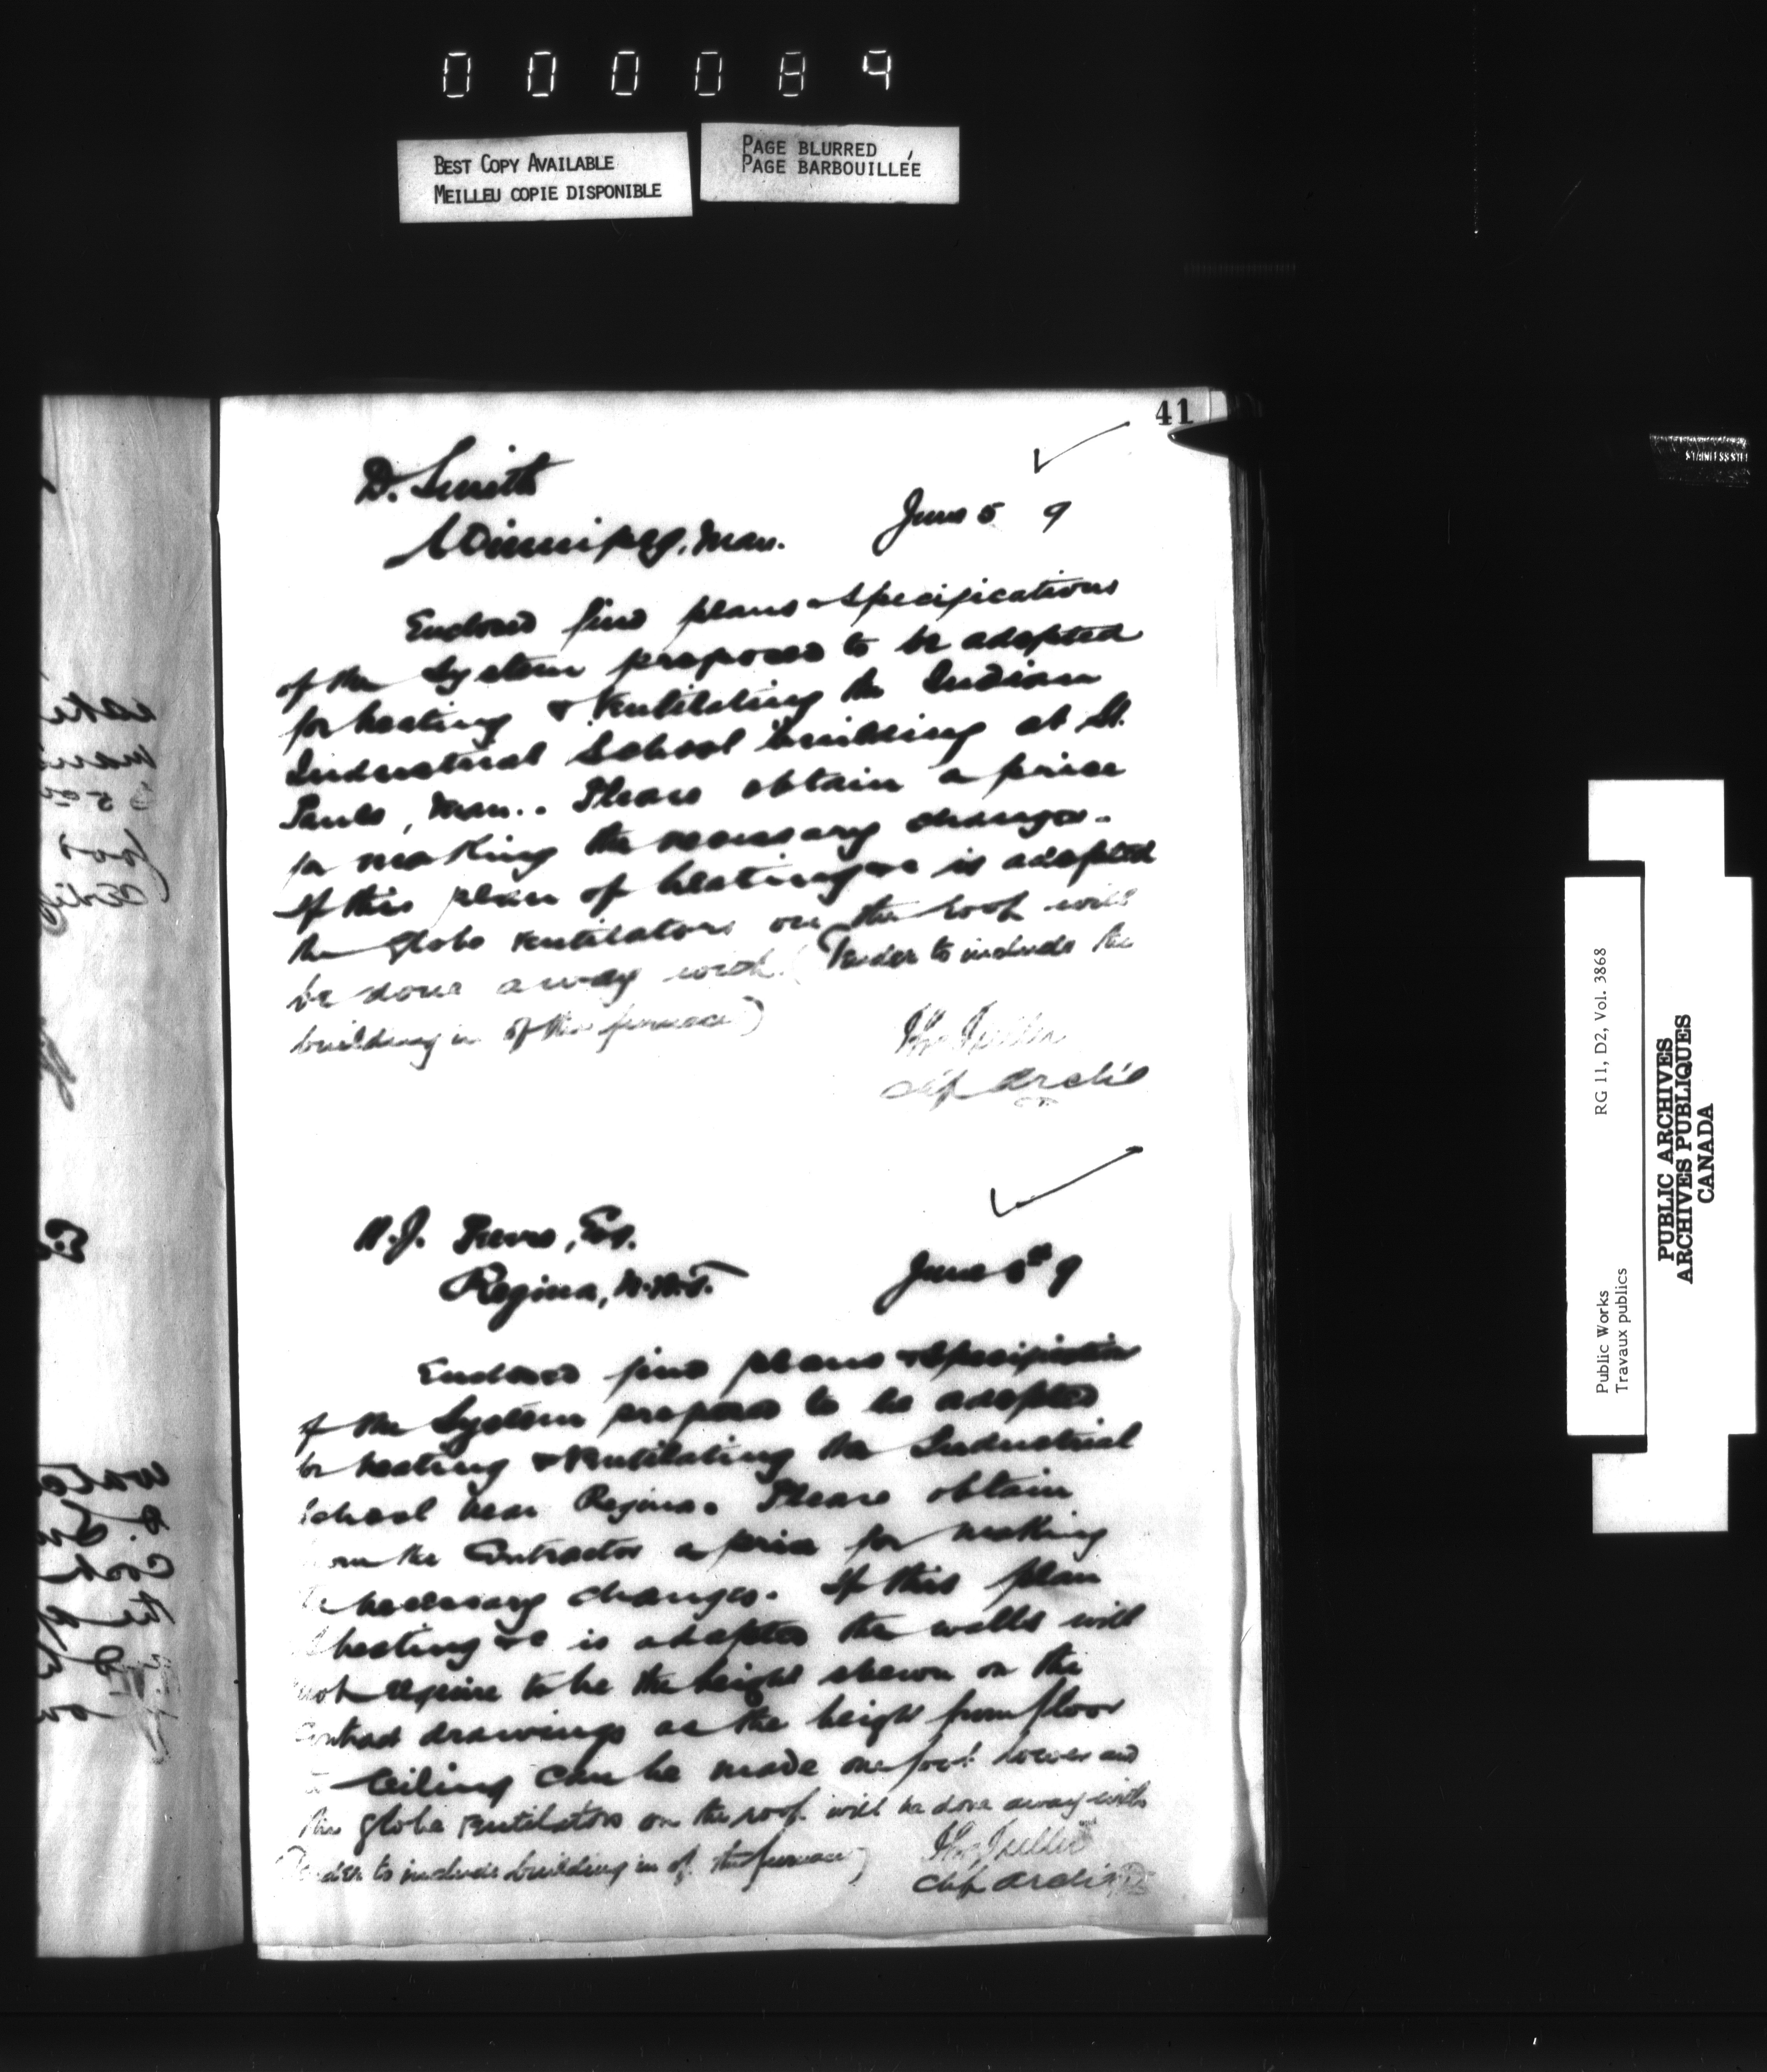 000089
BEST COPY AVAILABLE
MEILLEU COPIE DISPONIBLE
PAGE BLURRED
PAGE BARBOUILLÉE
41
D. Smith
Winnipeg, Man. June 5 9
Enclosed find plans & Specifications
of the System proposed to be adopted
for heating & Ventilating the Indian
Industrial School building at St.
Pauls, Man.. Please obtain a price
for making the necessary changes.
If this plan of heating &c is adopted
the globe ventilators on the roof will
be done away with. (Tender to include the
building in of the furnace)
Thos Fuller
Chf Archt
Esq.
Regina, N.W.T. June 5th 9
Enclosed find plans & Specification
of the System proposed to be adopted
for heating & Ventilating the Industrial
School near Regina. Please obtain
the Contractor a price for making
necessary changes. If this plan
heating &c is adopted the walls will
not require to be the height shewn on the
drawings as the height from floor
ceiling can be made one foot lower and
the globe ventilators on the roof will be done away with
to include building in of the furnace)
Thos Fuller
Chf Archt
RG 11, D2, Vol. 3868
Public Works
Travaux publics
PUBLIC ARCHIVES
ARCHIVES PUBLIQUES
CANADA